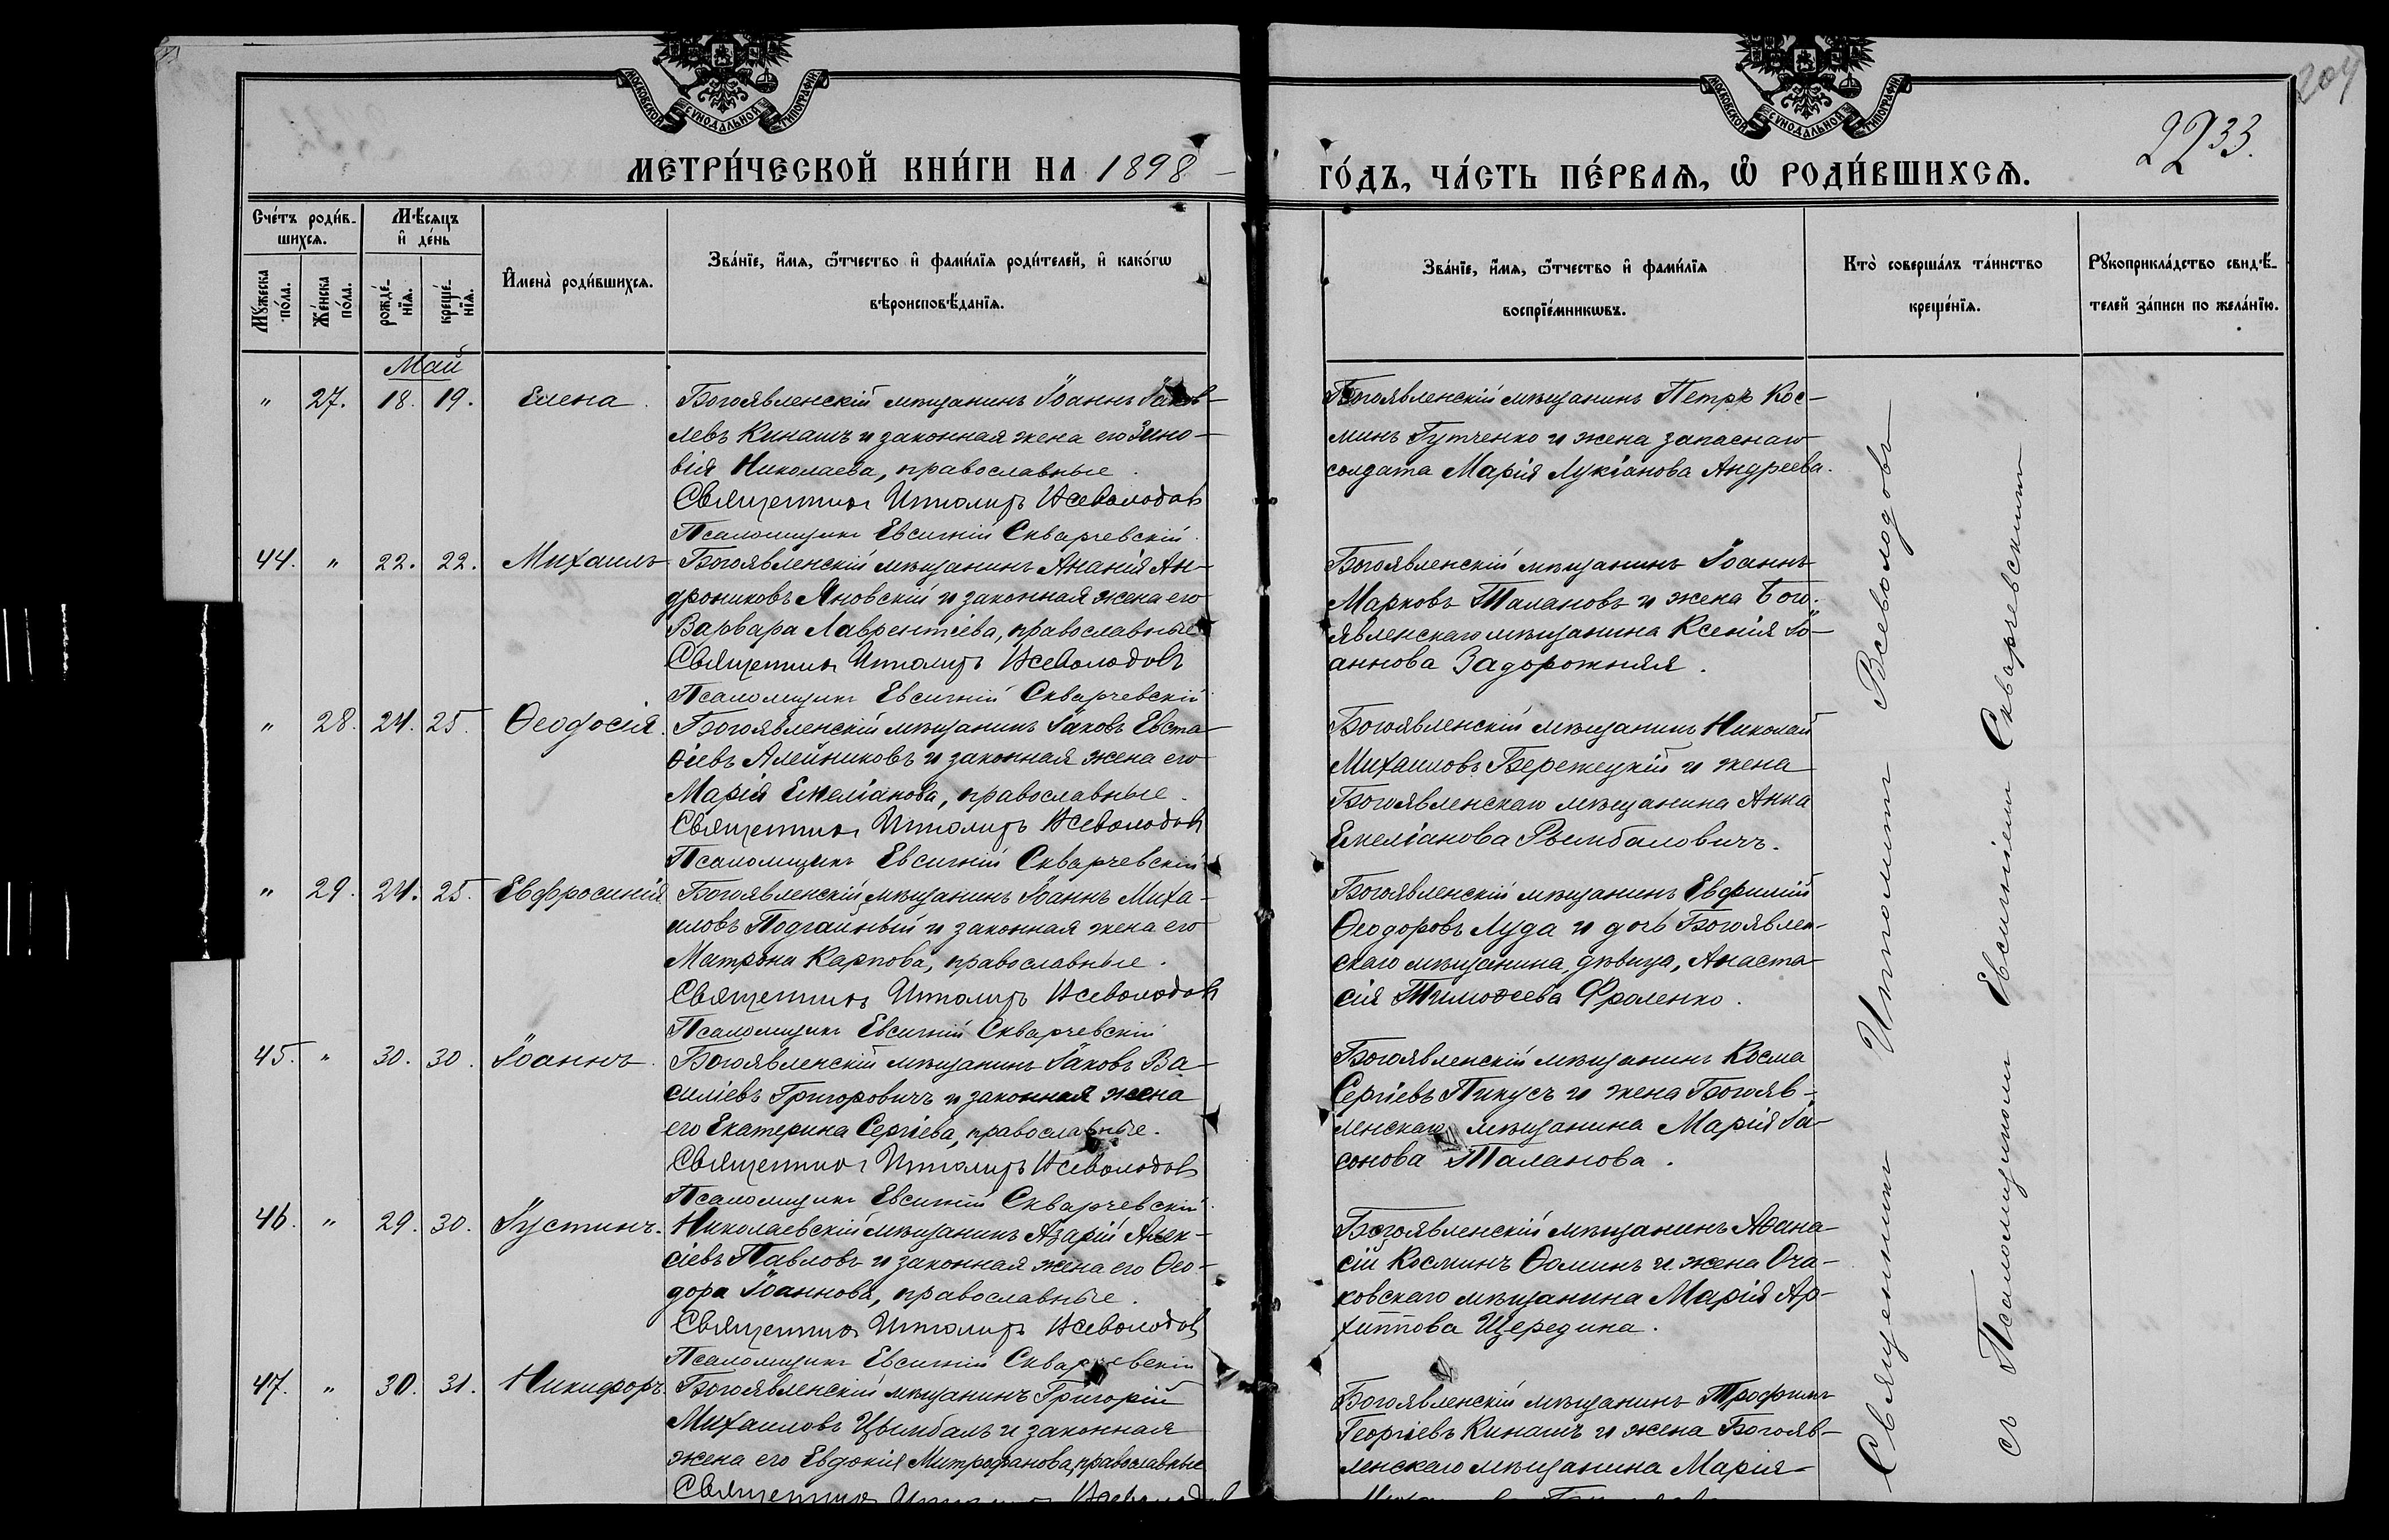 204
2233.
МОСКОВСКОЙ СѴНОДАЛЬНОЙ ТИПОГРАФІИ
МОСКОВСКОЙ СѴНОДАЛЬНОЙ ТИПОГРАФІИ
МЕТРИ́ЧЕСКОЙ КНИ́ГИ НА 1898 ГО́ДЪ, ЧА́СТЬ ПЕ́РВАѦ, Ѡ҆ РОДИ́ВШИХСѦ.
Сче́тъ роди́в-
шихсѧ.
Мꙋ́жеска по́ла.
Же́нска по́ла.
Мѣ́сѧцъ
и҆ де́нь
рожде́-
нїѧ.
креще́-
нїѧ.
И҆мена̀ роди́вшихсѧ.
Зва́нїе, и҆́мѧ, ѻ҆́тчество и҆ фами́лїѧ роди́телей, и҆ како́гѡ
вѣроисповѣ́данїѧ.
Зва́нїе, и҆́мѧ, ѻ҆́тчество и҆ фами́лїѧ
воспрїе́мникѡвъ.
Кто̀ соверша́лъ та́инство
креще́нїѧ.
Рꙋкоприкла́дство свидѣ́-
телей за́писи по жела́нїю.
Май
" 27. 18. 19. Елена.
Богоявленскій мѣщанинъ Іоаннъ Іаков-
левъ Кинашъ и законная жена его Зино-
вія Николаева, православные.
Священникъ Ипполитъ Всеволодовъ
Псаломщикъ Евсигній Скварчевскій.
Богоявленскій мѣщанинъ Петръ Кос-
минъ Гутченко и жена запаснаго
солдата Марія Лукіанова Андреева.
44. " 22. 22. Михаилъ
Богоявленскій мѣщанинъ Ананія Ан-
дрониковъ Яновскій и законная жена его
Варвара Лаврентіева, православные.
Священникъ Ипполитъ Всеволодовъ
Псаломщикъ Евсигній Скварчевскій
Богоявленскій мѣщанинъ Іоаннъ
Марковъ Талановъ и жена Бого-
явленскаго мѣщанина Ксенія Іо-
аннова Задорожняя.
" 28. 24. 25. Ѳеодосія.
Богоявленскій мѣщанинъ Іаковъ Евста-
ѳіевъ Алейниковъ и законная жена его
Марія Емеліанова, православные.
Священникъ Ипполитъ Всеволодовъ
Псаломщикъ Евсигній Скварчевскій
Богоявленскій мѣщанинъ Николай
Михаиловъ Бережецкій и жена
Богоявленскаго мѣщанина Анна
Емеліанова Рымбаловичъ.
" 29. 24. 25. Евфросинія
Богоявленскій мѣщанинъ Іоаннъ Миха-
иловъ Подгайный и законная жена его
Матрона Карпова, православные.
Священникъ Ипполитъ Всеволодовъ
Псаломщикъ Евсигній Скварчевскій
Богоявленскій мѣщанинъ Евфимій
Ѳеодоровъ Луда и дочь Богоявлен-
скаго мѣщанина, дѣвица, Анаста-
сія Тимоѳеева Фроленко.
45. " 30. 30. Іоаннъ.
Богоявленскій мѣщанинъ Іаковъ Ва-
силіевъ Григоровичъ и законная жена
его Екатерина Сергіева, православные.
Священникъ Ипполитъ Всеволодовъ
Псаломщикъ Евсигній Скварчевскій
Богоявленскій мѣщанинъ Косма
Сергіевъ Пикусъ и жена Богояв-
ленскаго мѣщанина Марія Іа-
сонова Таланова.
46. " 29. 30. Іустинъ.
Николаевскій мѣщанинъ Азарій Алек-
сіевъ Павловъ и законная жена его Ѳео-
дора Іоаннова, православные.
Священникъ Ипполитъ Всеволодовъ
Псаломщикъ Евсигній Скварчевскій
Богоявленскій мѣщанинъ Аѳана-
сій Косминъ Ѳоминъ и жена Оча-
ковскаго мѣщанина Марія Ар-
хиппова Щередина.
47. " 30. 31. Никифоръ.
Богоявленскій мѣщанинъ Григорій
Михаиловъ Цымбалъ и законная
жена его Евдокія Митрофанова, православные
Священникъ Ипполитъ Всеволодовъ
Богоявленскій мѣщанинъ Трофимъ
Георгіевъ Кинашъ и жена Богояв-
ленскаго мѣщанина Марія
Священникъ Ипполитъ Всеволодовъ
съ Псаломщикомъ Евсигніемъ Скварчевскимъ